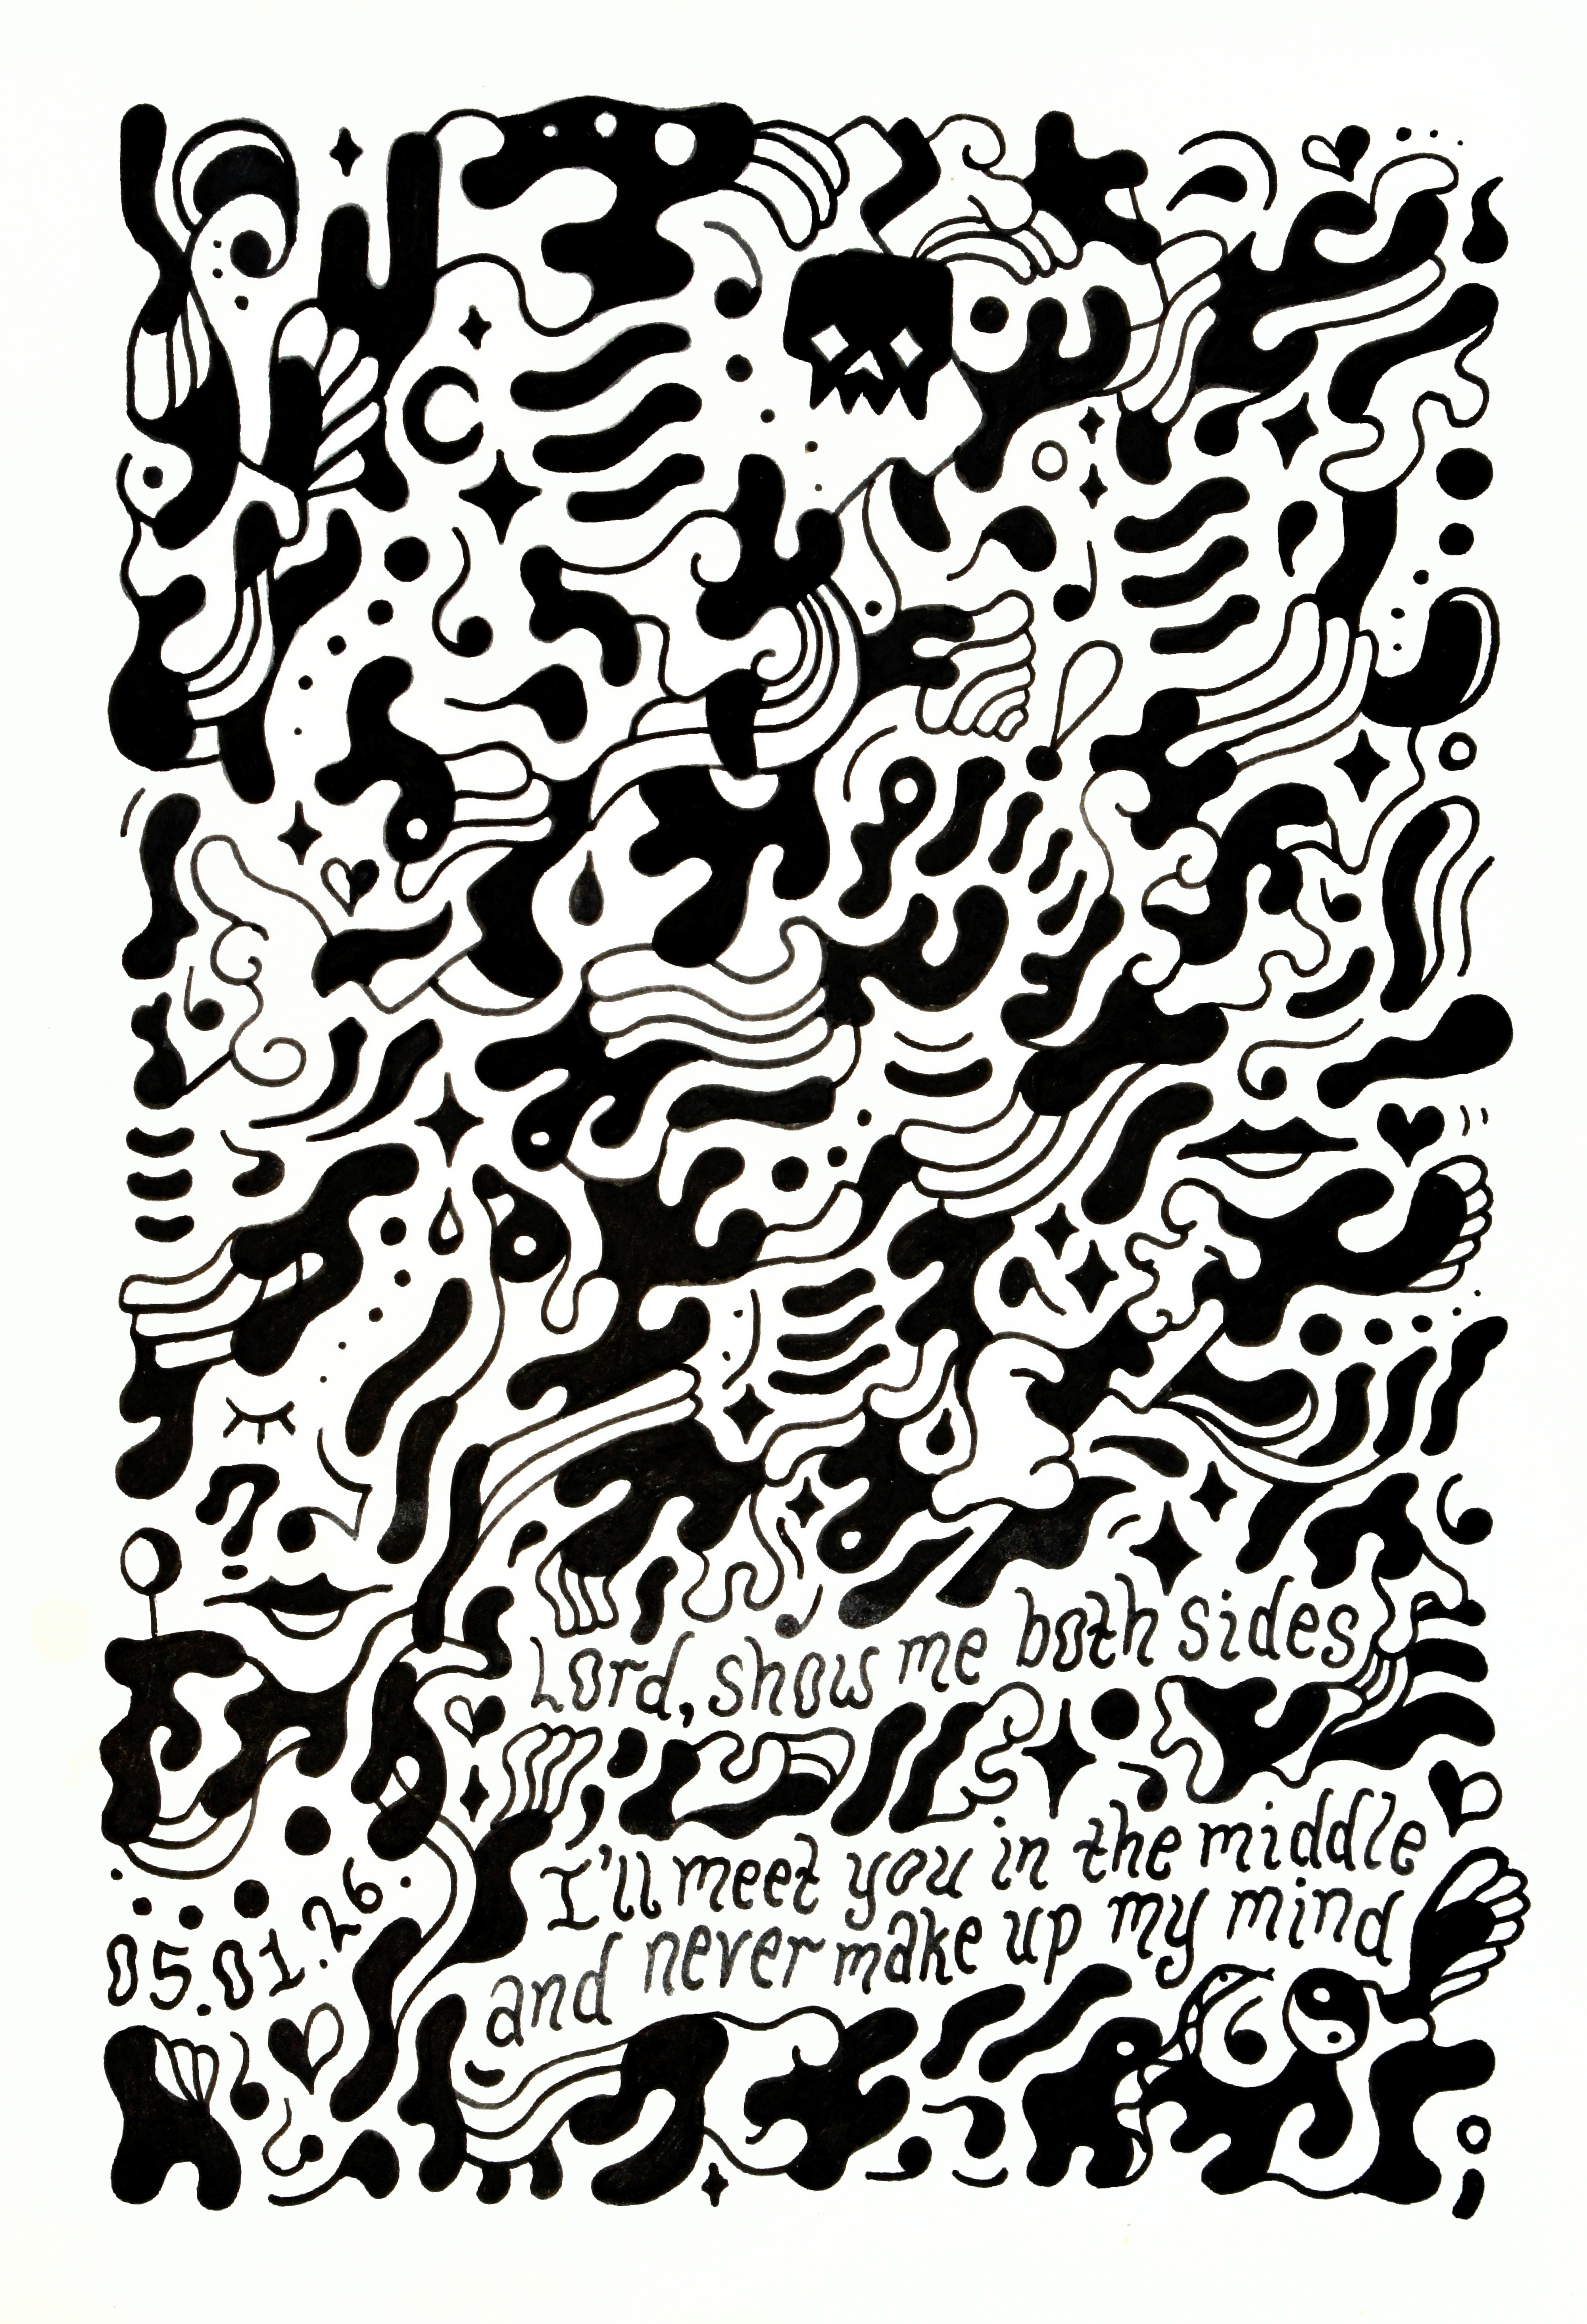 Lord, show me both sides
I'll meet you in the middle
and never make up my mind
05.01.26